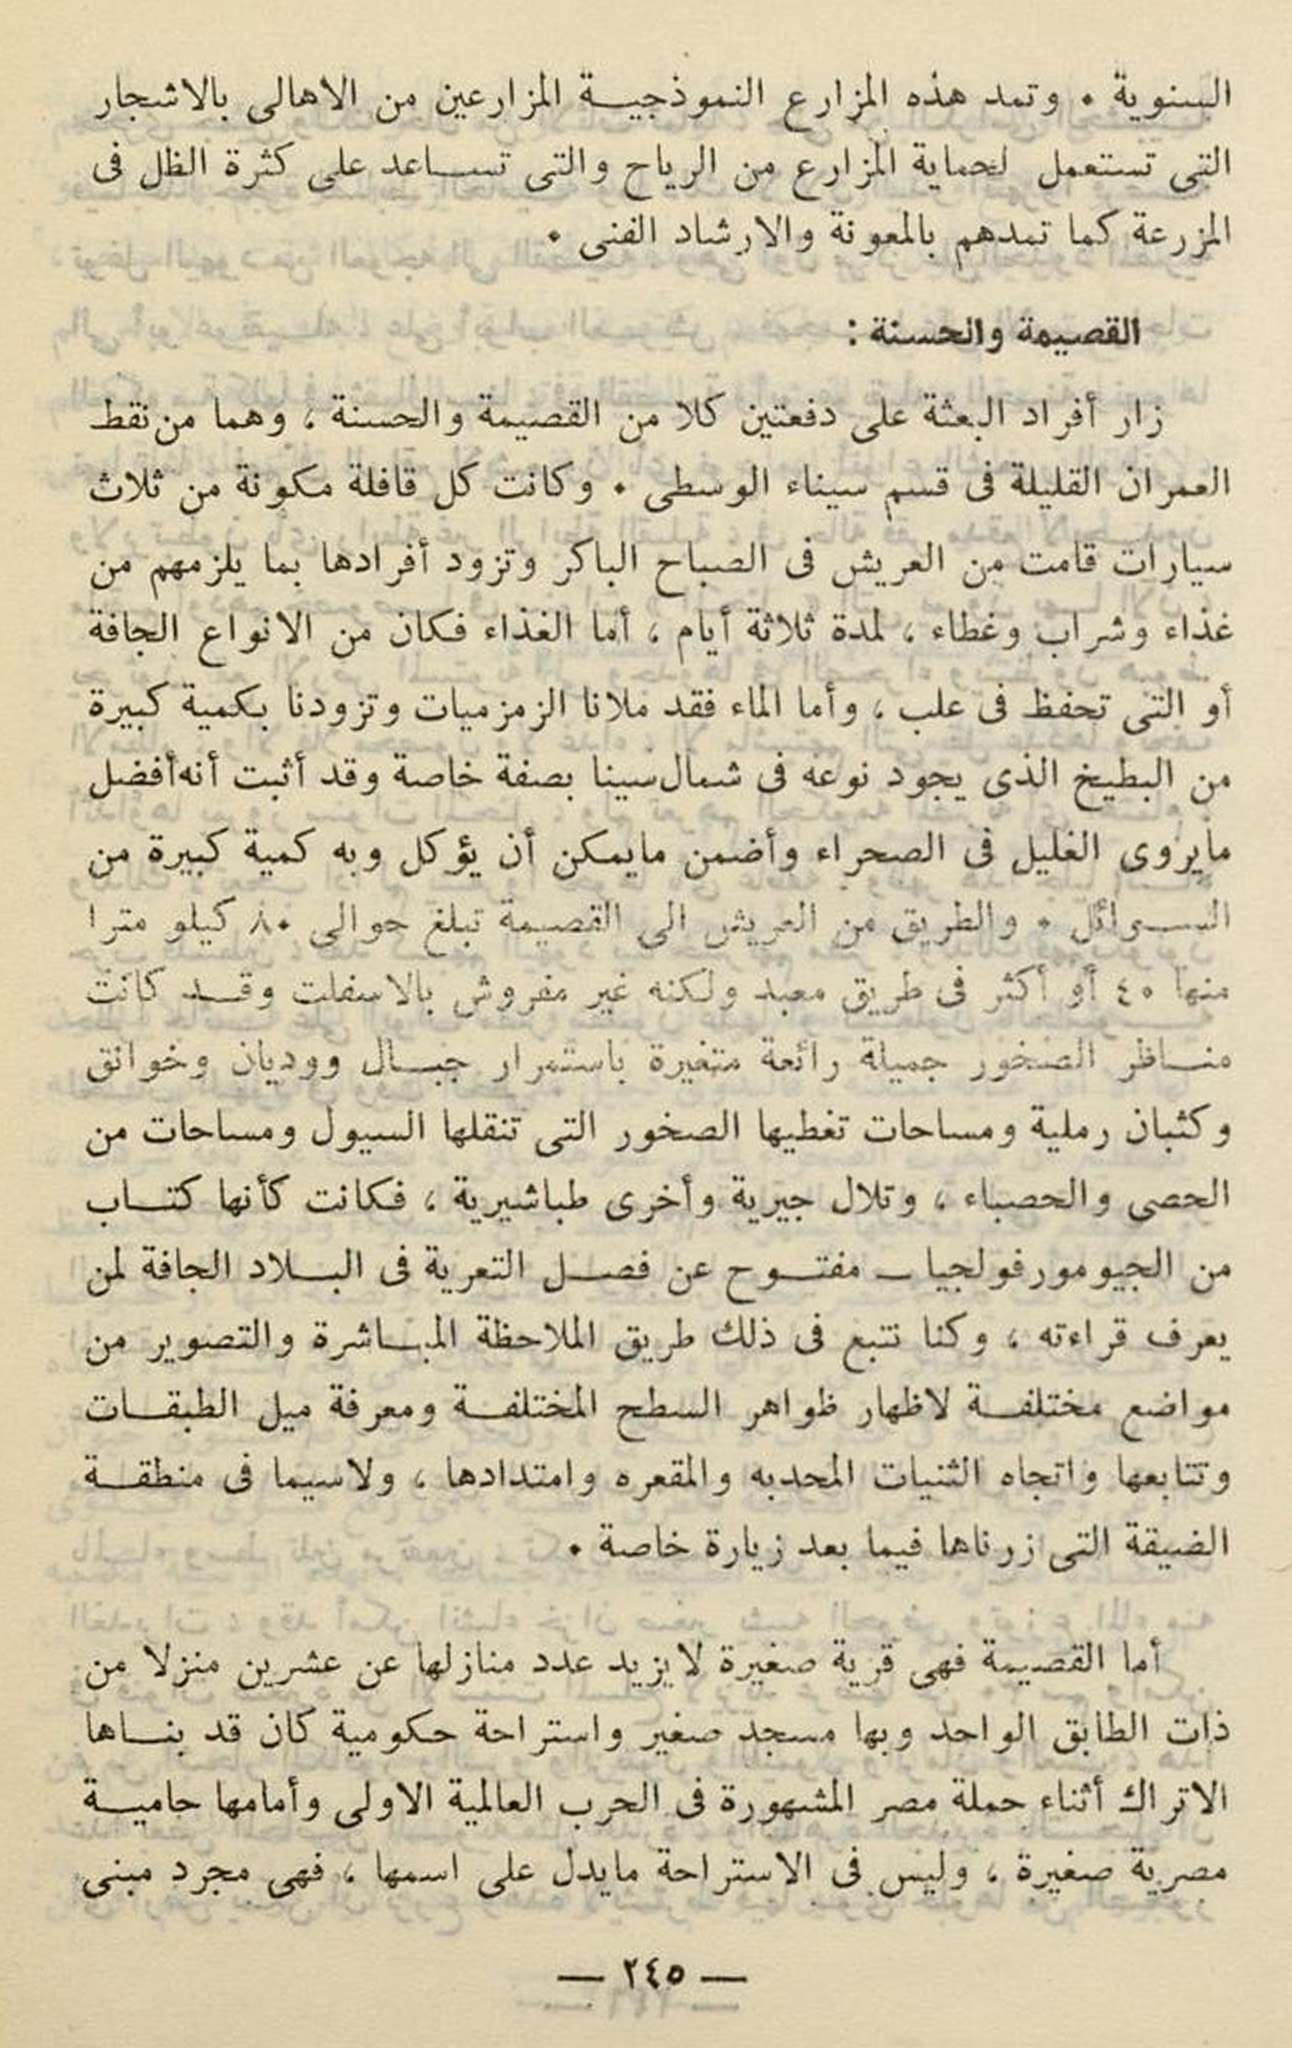 السنوية ٠ وتمد هذه المزارع النموذجيـــة المزارعين من الاهالى بالاشجار
التى تستعمل لحماية المزارع من الرياح والتى تســاعد على كثرة الظل فى
المزرعة كما تمدهم بالمعونة والارشاد الفنى ٠
القصيمة والحسنة :
زار أفراد البعثة على دفعتين كلا من القصيمة والحسنة ، وهما من نقط
العمران القليلة فى قسم سيناء الوسطى ٠ وكانت كل قافلة مكونة من ثلاث
سيارات قامت من العريش فى الصباح الباكر وتزود أفرادها بما يلزمهم من
غذاء وشراب وغطاء ، لمدة ثلاثة أيام ، أما الغذاء فكان من الانواع الجافة
أو التى تحفظ فى علب ، وأما الماء فقد ملانا الزمزميات وتزودنا بكمية كبيرة
من البطيخ الذى يجود نوعه فى شمال سينا بصفة خاصة وقد أثبت أنه أفضل
مايروى الغليل فى الصحراء وأضمن مايمكن أن يؤكل وبه كمية كبيرة من
الســـوائل ٠ والطريق من العريش الى القصيمة تبلغ حوالى ٨٠ كيلو مترا
منها ٤٠ أو أكثر فى طريق معبد ولكنه غير مفروش بالاسفلت وقــد كانت
منــاظر الصخور جميلة رائعة متغيرة باستمرار جبــال ووديان وخوانق
وكثبان رملية ومساحات تغطيها الصخور التى تنقلها السيول ومساحات من
الحصى والحصباء ، وتلال جيرية وأخرى طباشيرية ، فكانت كأنها كتــاب
من الجيومورفولجيا ــ مفتــوح عن فصــل التعرية فى البــلاد الجافة لمن
يعرف قراءته ، وكنا نتبع فى ذلك طريق الملاحظة المبــاشرة والتصوير من
مواضع مختلفــة لاظهار ظواهر السطح المختلفــة ومعرفة ميل الطبقــات
وتتابعها واتجاه الثنيات المحدبه والمقعره وامتدادها ، ولاسيما فى منطقــة
الضيقة التى زرناها فيما بعد زيارة خاصة ٠
أما القصيمة فهى قرية صغيرة لايزيد عدد منازلها عن عشرين منزلا من
ذات الطابق الواحد وبها مسجد صغير واستراحة حكومية كان قد بنــاها
الاتراك أثناء حملة مصر المشهورة فى الحرب العالمية الاولى وأمامها حاميــة
مصرية صغيرة ، وليس فى الاستراحة مايدل على اسمها ، فهى مجرد مبنى
— ٢٤٥ —